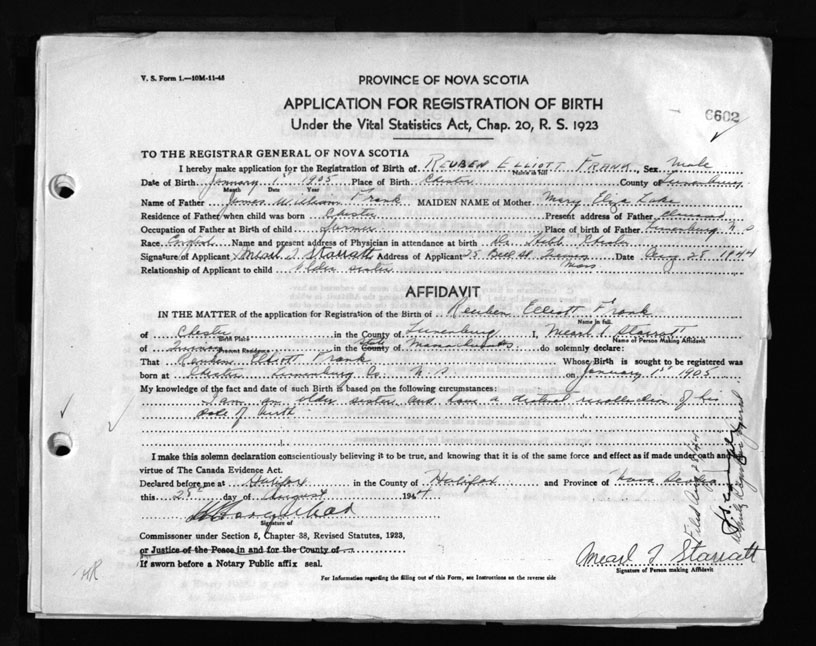 V. S. Form 1.—10M-11-43
PROVINCE OF NOVA SCOTIA
APPLICATION FOR REGISTRATION OF BIRTH
6602
Under the Vital Statistics Act, Chap. 20, R. S. 1923
TO THE REGISTRAR GENERAL OF NOVA SCOTIA
I hereby make application for the Registration of Birth of REUBEN ELLIOTT FRANK, Sex Male
Name in full
Date of Birth January 1st 1905 Place of Birth Chester County of Lunenburg
Month Date Year
Name of Father James William Frank MAIDEN NAME of Mother Mary Eliza
Residence of Father when child was born Chester Present address of Father deceased
Occupation of Father at Birth of child farmer Place of birth of Father Lunenburg N S
Race English Name and present address of Physician in attendance at birth Dr. Hebb Chester
Signature of Applicant Mearl T Starratt Address of Applicant 25 Bell St Date Aug 25 1944
Mass
Relationship of Applicant to child Older sister
AFFIDAVIT
IN THE MATTER of the application for Registration of the Birth of Reuben Elliott Frank
Name in full
of Chester in the County of Lunenburg I, Mearl T Starratt
Birth Place Name of Person Making Affidavit
of in the County State of Massachusetts do solemnly declare:
Present Residence
That Reuben Elliott Frank Whose Birth is sought to be registered was
born at Chester Lunenburg Co. N S on January 1st 1905
My knowledge of the fact and date of such Birth is based on the following circumstances:
I am an older sister and have a distinct recollection of his
date of birth
I make this solemn declaration conscientiously believing it to be true, and knowing that it is of the same force and effect as if made under oath and
virtue of The Canada Evidence Act.
Declared before me at Halifax in the County of Halifax and Province of Nova Scotia
this 25th day of August 1944
Signature of
Commissioner under Section 5, Chapter 38, Revised Statutes, 1923,
or Justice of the Peace in and for the County of
If sworn before a Notary Public affix seal.
Mearl T Starratt
Signature of Person making Affidavit
For Information regarding the filling out of this Form, see Instructions on the reverse side
Filed Aug 25/44